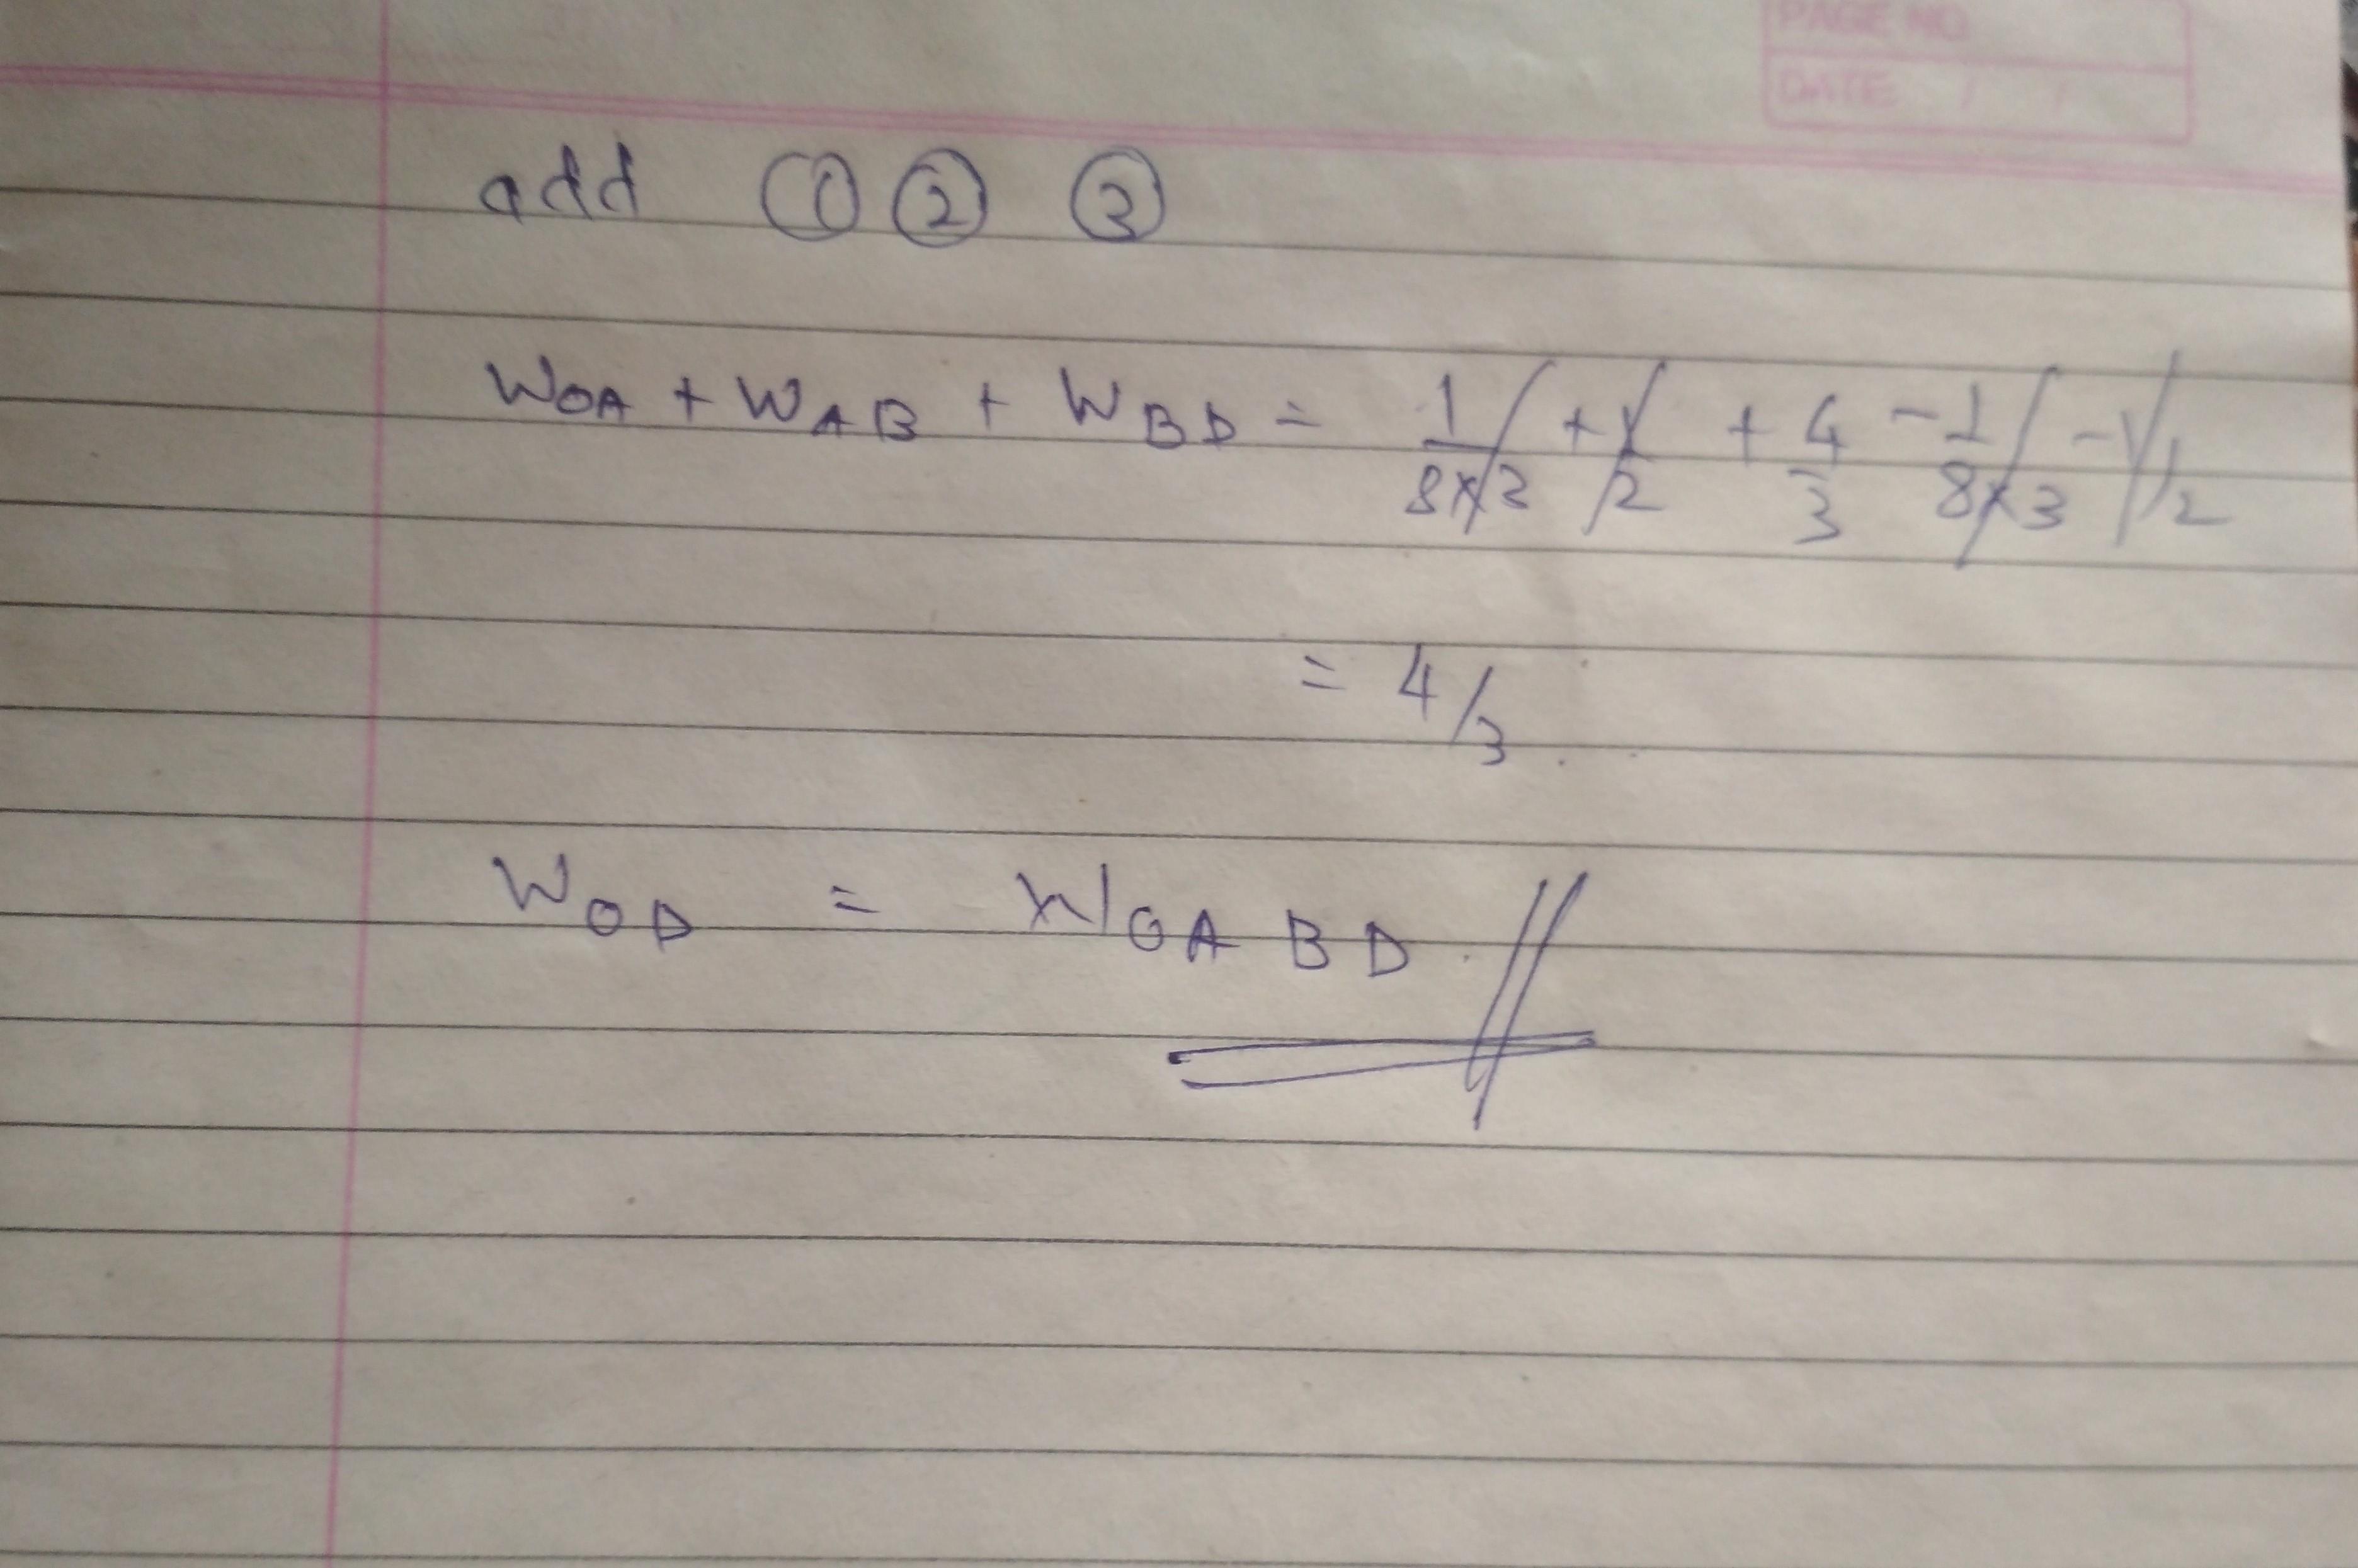 PAGE NO
DATE / /
add ① ② ③
W_OA + W_AB + W_BD = 1/(8×3) + 1/2 + 4/3 - 1/(8×3) - 1/2
= 4/3
W_OD = W_OABD